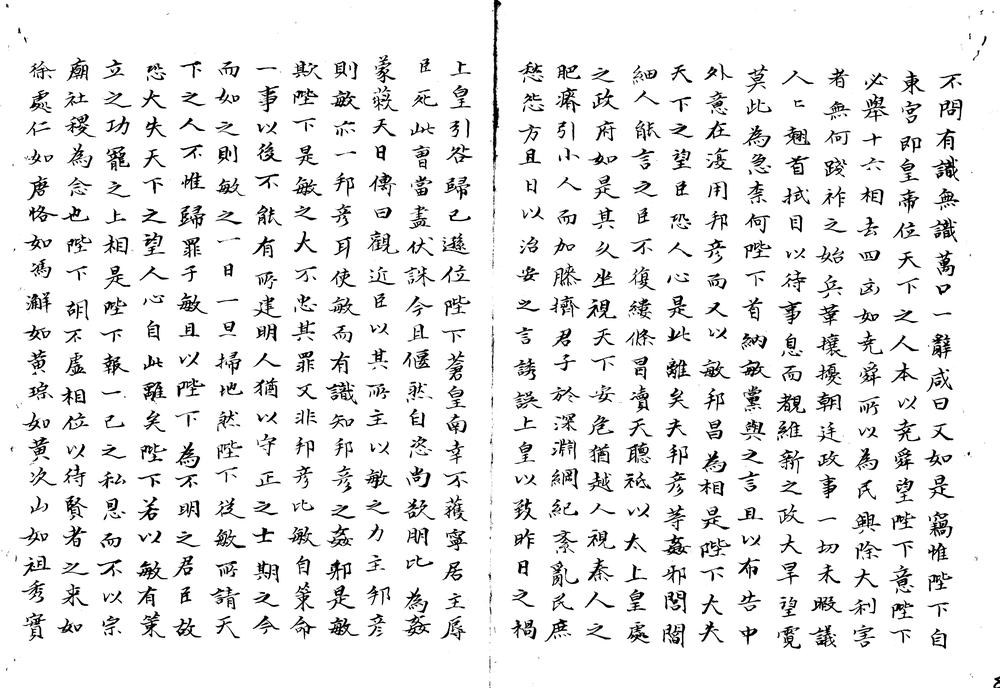 不問有識無識萬口一辭咸曰又如是竊惟陛下自
東宮即皇帝位天下之人本以堯舜望陛下意陛下
必舉十六相去四凶如堯舜所以為民興除大利害
者無何踐祚之始兵革攘擾朝廷政事一切未暇議
人亡翹首拭目以待事息而覩維新之政大旱望霓
莫此為急柰何陛下首納敏黨與之言且以布告中
外意在復用邦彦而又以敏邦昌為相是陛下大失
天下之望臣恐人心是此離矣夫邦彦等姦邪閭閻
細人能言之臣不復縷條冒瀆天聽祗以太上皇處
之政府如是其久坐視天下安危猶越人視秦人之
肥瘠引小人而加膝擠君子於深淵綱紀紊亂民庶
愁怨方且日以治安之言誘誤上皇以致昨日之禍
上皇引咎歸己遜位陛下蒼皇南幸不獲寧居主辱
臣死此曹當盡伏誅今且偃然自恣尚欲朋比為姦
蒙蔽天日傳曰觀近臣以其所主以敏之力主邦彦
則敏亦一邦彦耳使敏而有識知邦彦之姦邪是敏
欺陛下是敏之大不忠其罪又非邦彦比敏自策命
一事以後不能有所建明人猶以守正之士期之今
而如之則敏之一日一旦掃地然陛下從敏所請天
下之人不惟歸罪于敏且以陛下為不明之君臣故
恐大失天下之望人心自此離矣陛下若以敏有策
立之功寵之上相是陛下報一己之私恩而不以宗
廟社稷為念也陛下胡不虛相位以待賢者之来如
徐處仁如唐恪如馮澥如黃琮如黃次山如祖秀實